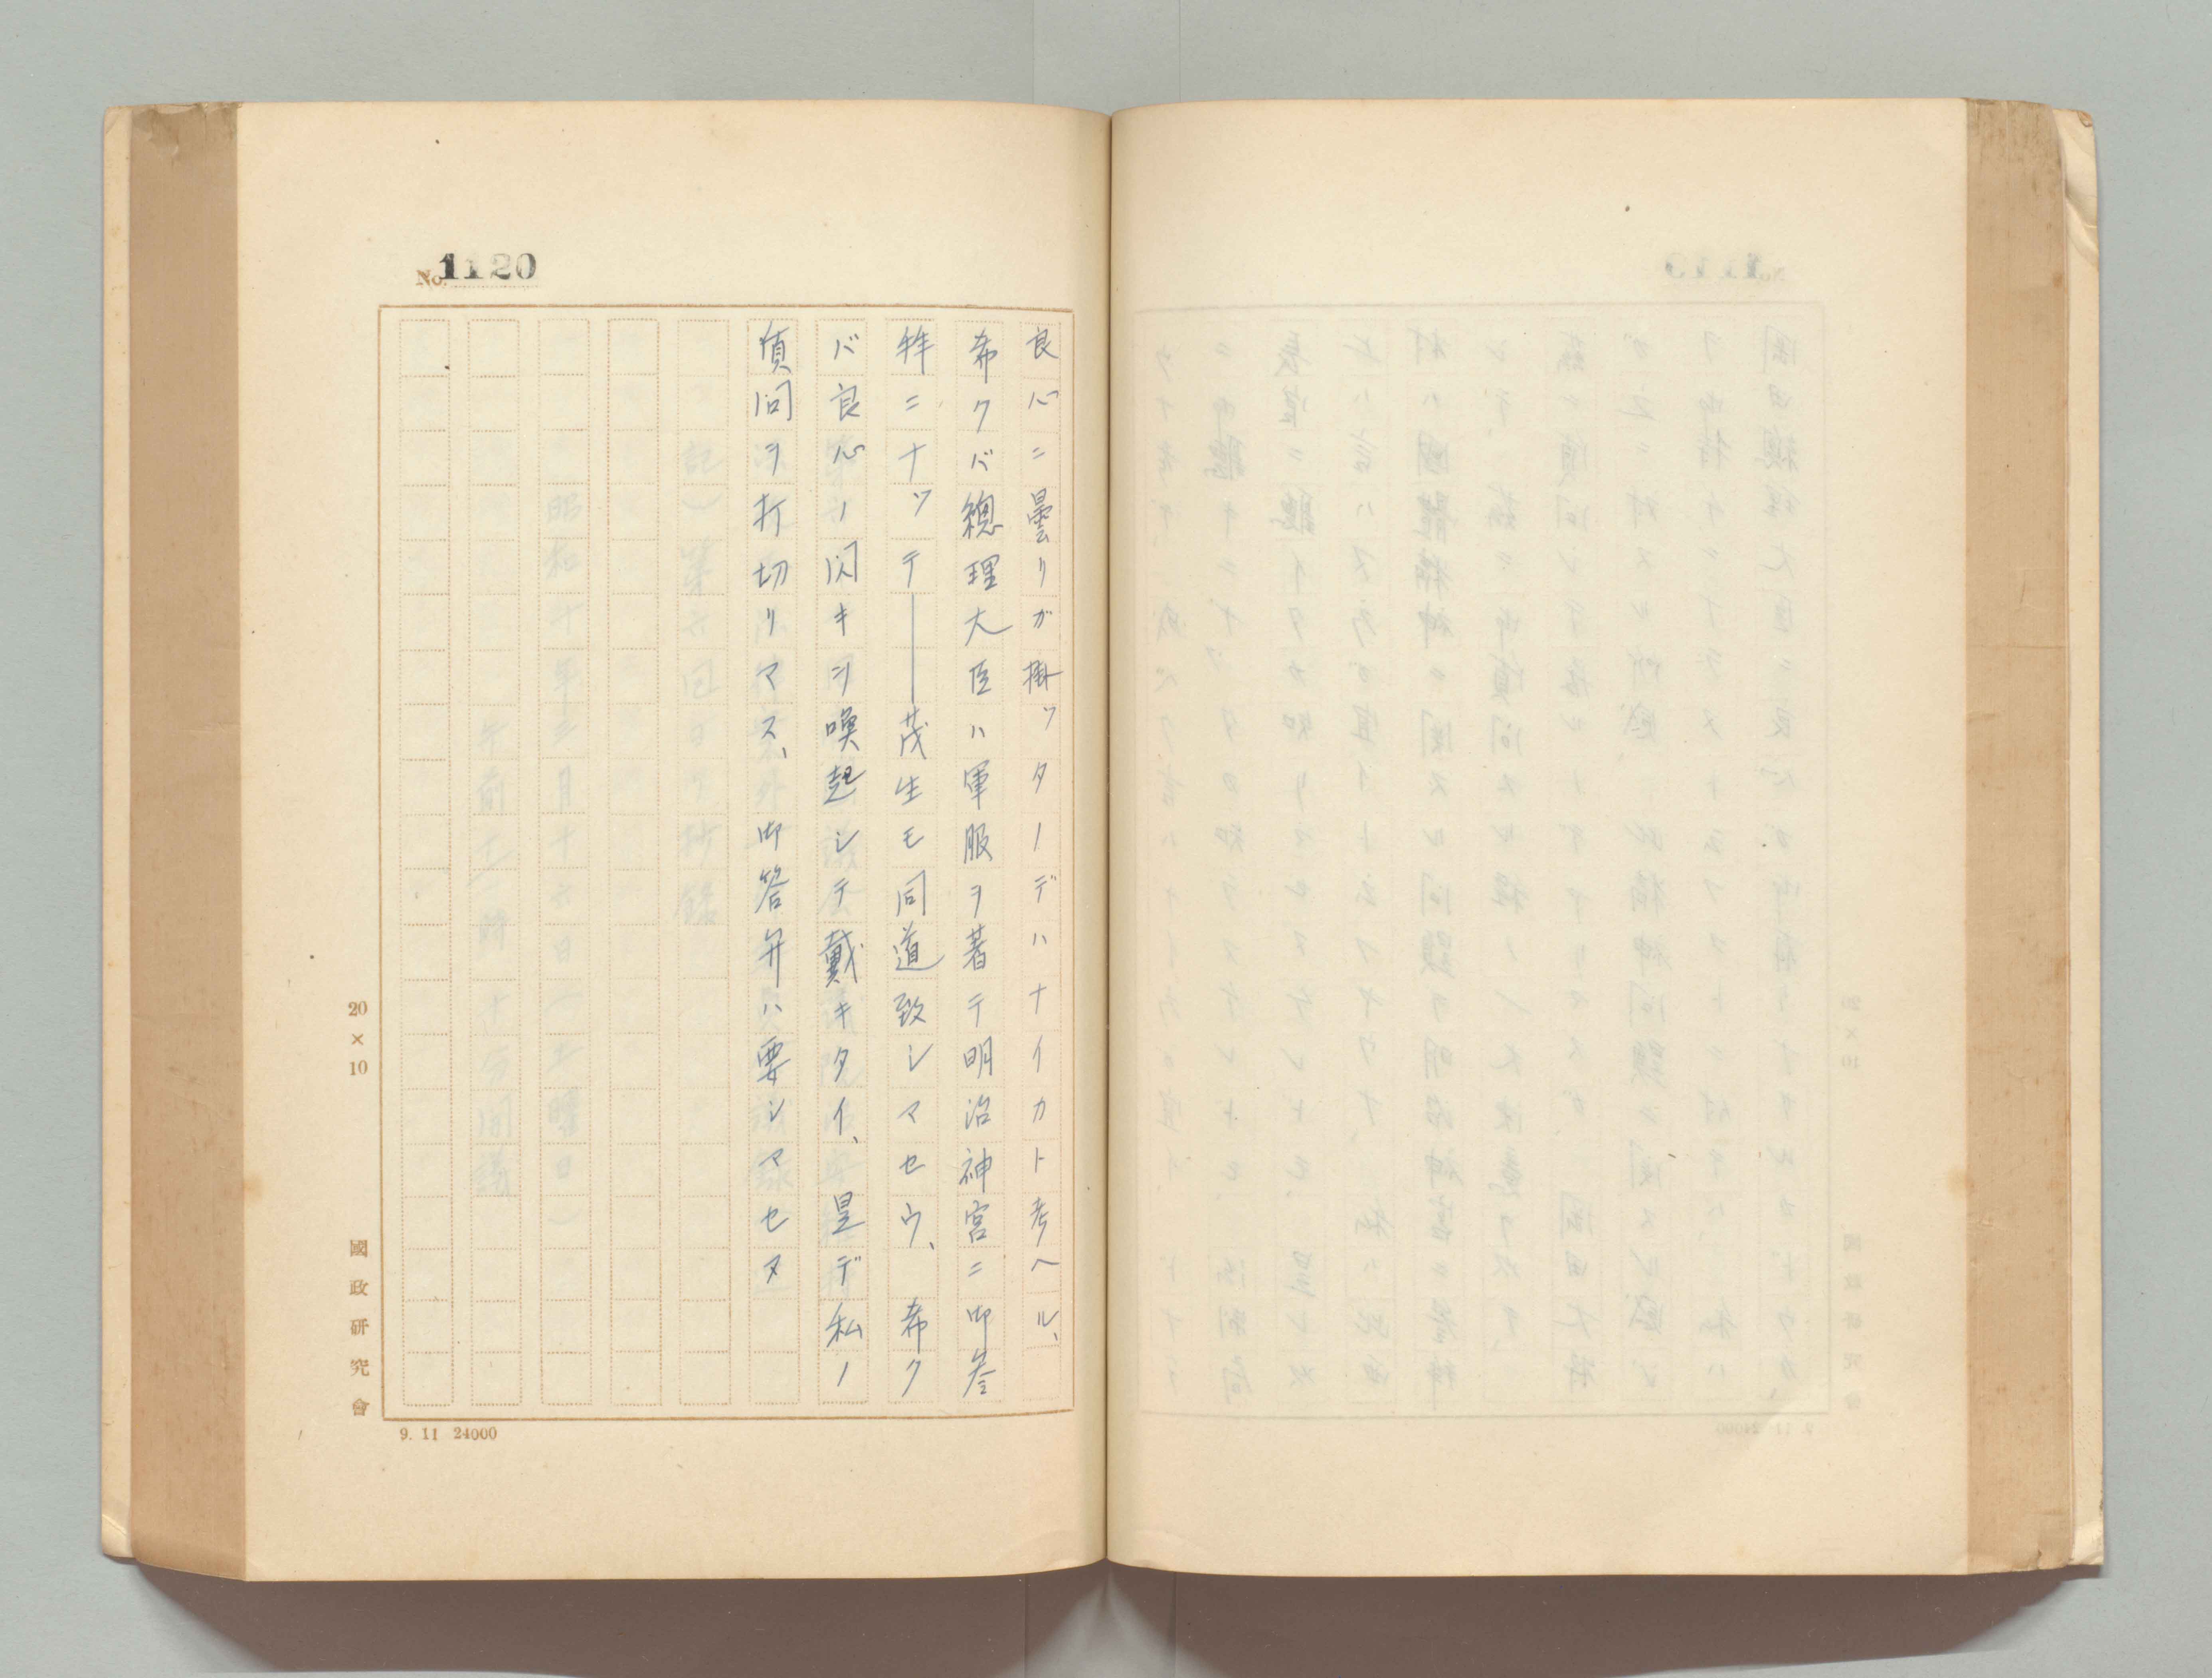 No. 1120
良心ニ曇リガ掛ッタノデハナイカト考ヘル、
希クバ總理大臣ハ軍服ヲ著テ明治神宮ニ御參
拜ニナッテ――茂生モ同道致シマセウ、希ク
バ良心ノ閃キヲ喚起シテ戴キタイ、是デ私ノ
質問ヲ打切リマス、御答弁ハ要シマセヌ
20×10
國政研究會
9. 11 24000